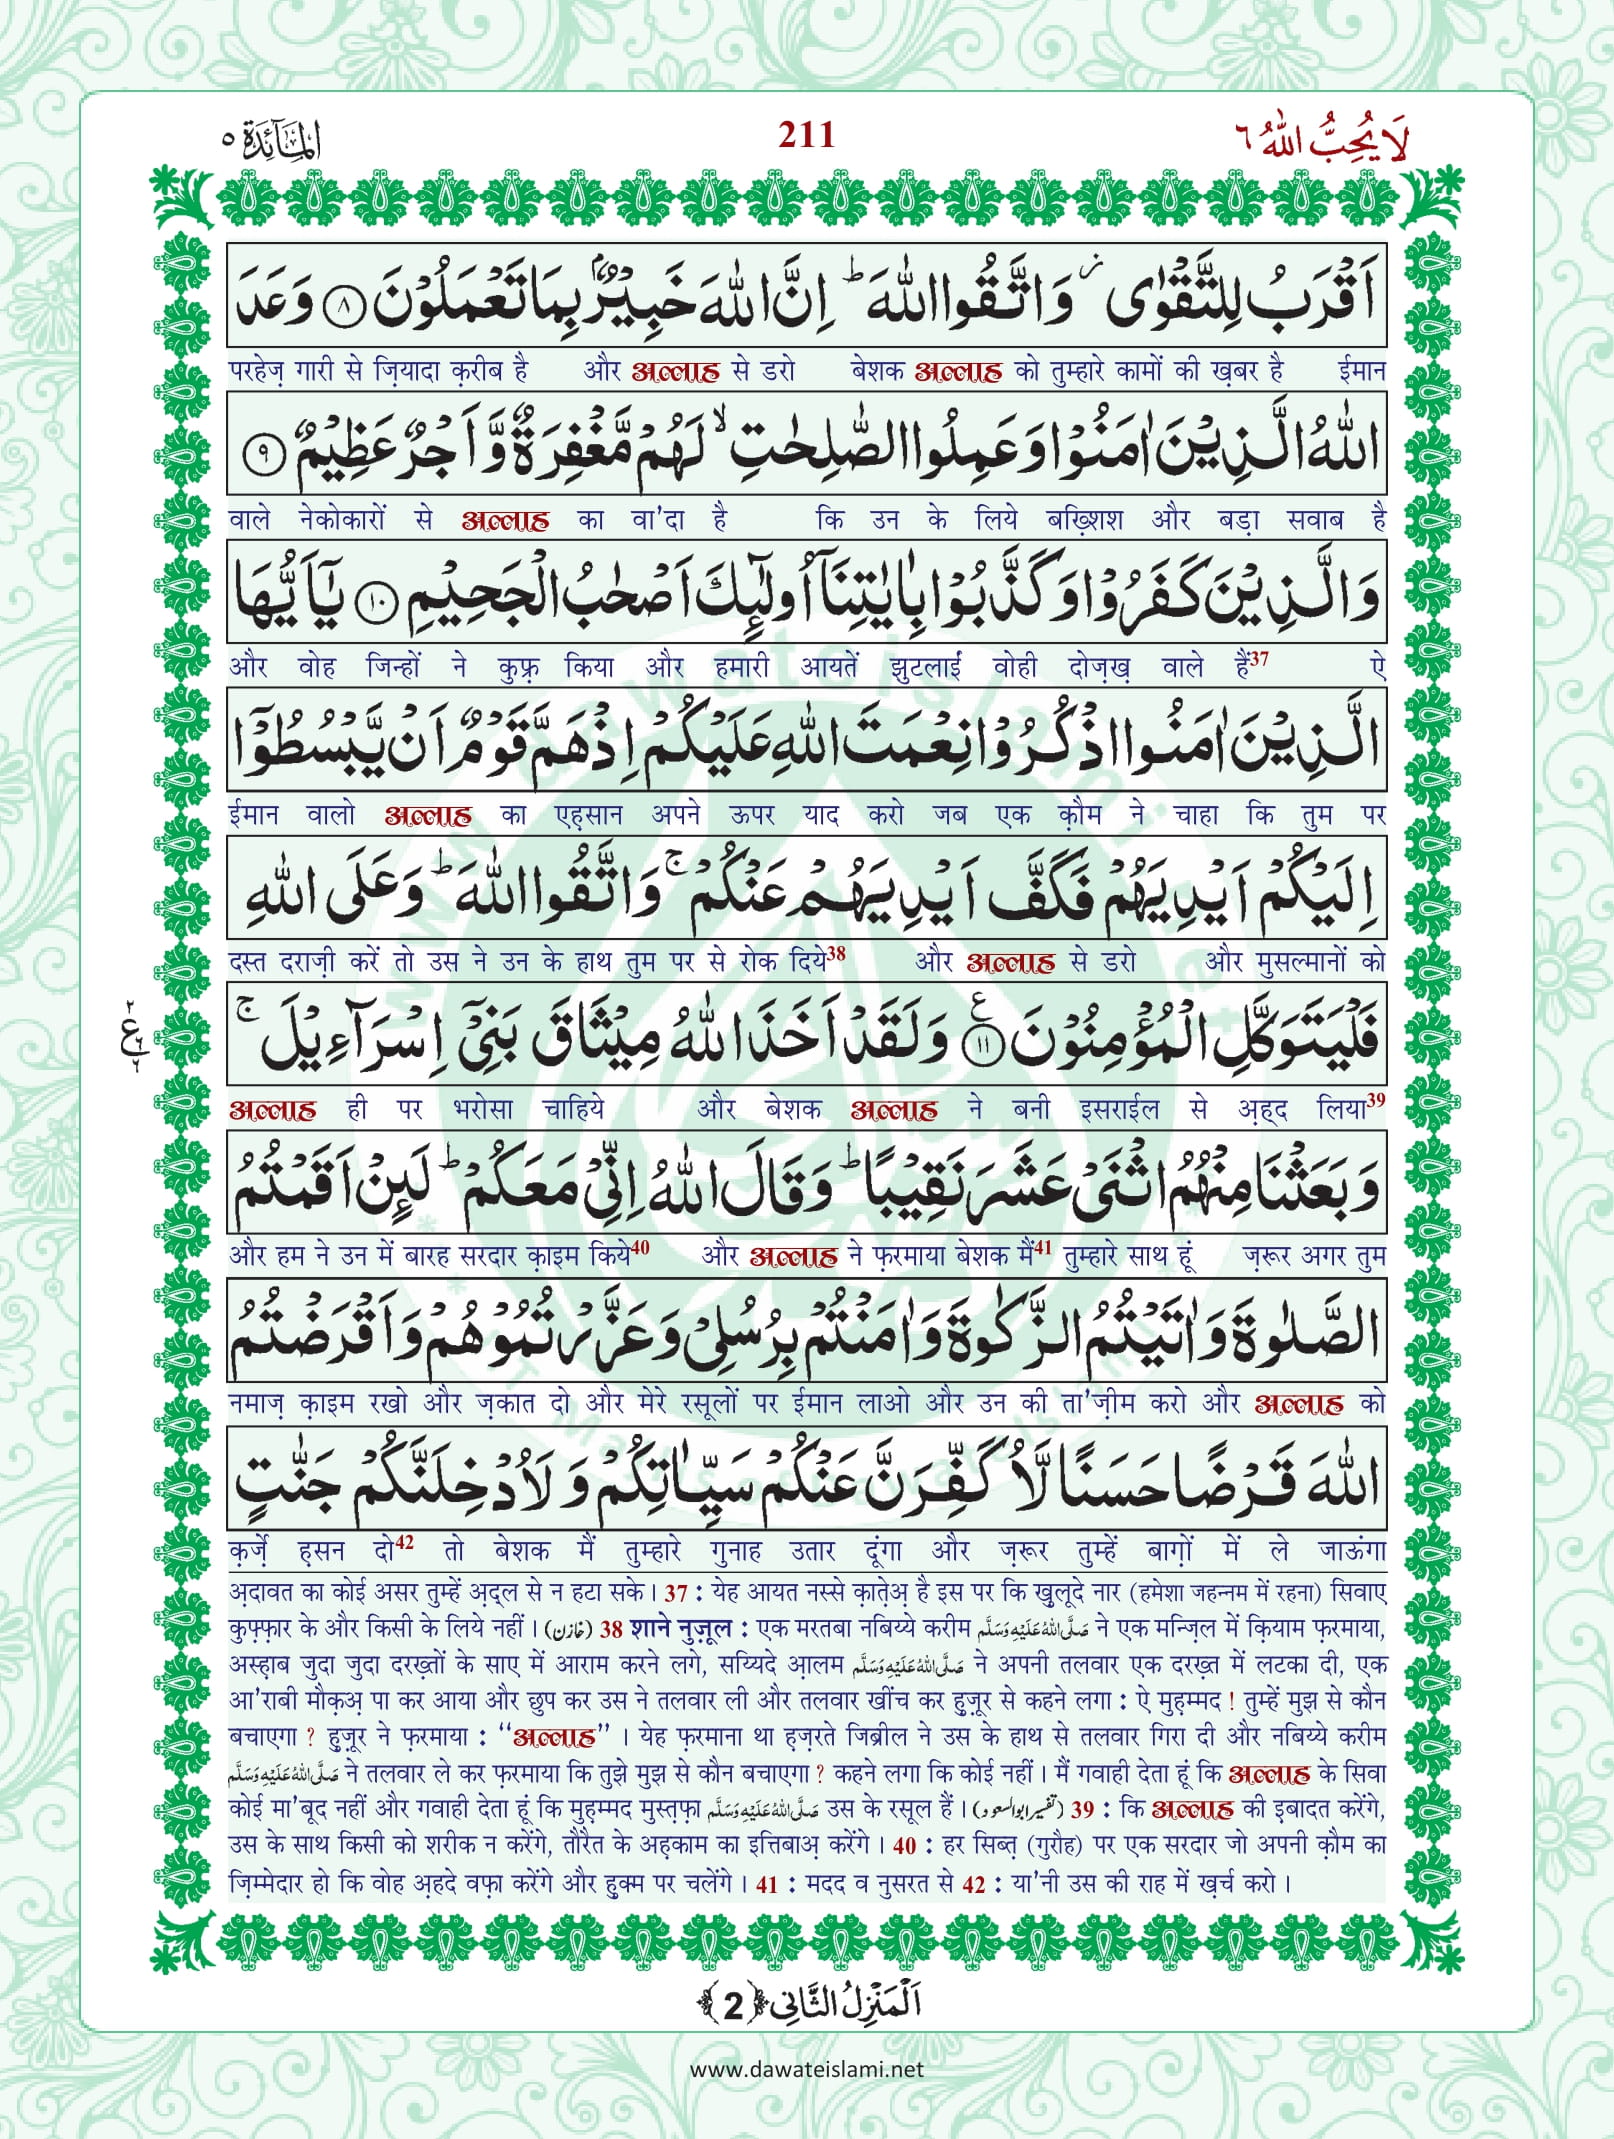 المَآئِدَة ٥
211
لَا يُحِبُّ اللّٰهُ ٦
اَقْرَبُ لِلتَّقْوٰى ۫ وَاتَّقُوا اللّٰهَ ؕ اِنَّ اللّٰهَ خَبِیْرٌۢ بِمَا تَعْمَلُوْنَ ﴿۸﴾ وَعَدَ
परहेज़ गारी से ज़ियादा क़रीब है और अल्लाह से डरो बेशक अल्लाह को तुम्हारे कामों की ख़बर है ईमान
اللّٰهُ الَّذِیْنَ اٰمَنُوْا وَ عَمِلُوا الصّٰلِحٰتِ ۙ لَهُمْ مَّغْفِرَةٌ وَّ اَجْرٌ عَظِیْمٌ ﴿۹﴾
वाले नेकोकारों से अल्लाह का वा'दा है कि उन के लिये बख़्शिश और बड़ा सवाब है
وَالَّذِیْنَ كَفَرُوْا وَ كَذَّبُوْا بِاٰیٰتِنَاۤ اُولٰٓىِٕكَ اَصْحٰبُ الْجَحِیْمِ ﴿۱۰﴾ یٰۤاَیُّهَا
और वोह जिन्हों ने कुफ़्र किया और हमारी आयतें झुटलाईं वोही दोज़ख़ वाले हैं37 ऐ
الَّذِیْنَ اٰمَنُوا اذْكُرُوْا نِعْمَتَ اللّٰهِ عَلَیْكُمْ اِذْ هَمَّ قَوْمٌ اَنْ یَّبْسُطُوْۤا
ईमान वालो अल्लाह का एह़सान अपने ऊपर याद करो जब एक क़ौम ने चाहा कि तुम पर
اِلَیْكُمْ اَیْدِیَهُمْ فَكَفَّ اَیْدِیَهُمْ عَنْكُمْ ۚ وَاتَّقُوا اللّٰهَ ؕ وَعَلَى اللّٰهِ
दस्त दराज़ी करें तो उस ने उन के हाथ तुम पर से रोक दिये38 और अल्लाह से डरो और मुसल्मानों को
فَلْیَتَوَكَّلِ الْمُؤْمِنُوْنَ ﴿۱۱﴾ ع وَلَقَدْ اَخَذَ اللّٰهُ مِیْثَاقَ بَنِیْۤ اِسْرَآءِیْلَ ۚ
٢ ع ٦ ٦
अल्लाह ही पर भरोसा चाहिये और बेशक अल्लाह ने बनी इसराईल से अ़ह्द लिया39
وَ بَعَثْنَا مِنْهُمُ اثْنَیْ عَشَرَ نَقِیْبًا ؕ وَقَالَ اللّٰهُ اِنِّیْ مَعَكُمْ ؕ لَىِٕنْ اَقَمْتُمُ
और हम ने उन में बारह सरदार क़ाइम किये40 और अल्लाह ने फ़रमाया बेशक मैं41 तुम्हारे साथ हूं ज़रूर अगर तुम
الصَّلٰوةَ وَ اٰتَیْتُمُ الزَّكٰوةَ وَ اٰمَنْتُمْ بِرُسُلِیْ وَ عَزَّرْتُمُوْهُمْ وَ اَقْرَضْتُمُ
नमाज़ क़ाइम रखो और ज़कात दो और मेरे रसूलों पर ईमान लाओ और उन की ता'ज़ीम करो और अल्लाह को
اللّٰهَ قَرْضًا حَسَنًا لَّاُكَفِّرَنَّ عَنْكُمْ سَیِّاٰتِكُمْ وَ لَاُدْخِلَنَّكُمْ جَنّٰتٍ
क़र्ज़े ह़सन दो42 तो बेशक मैं तुम्हारे गुनाह उतार दूंगा और ज़रूर तुम्हें बाग़ों में ले जाऊंगा
अ़दावत का कोई असर तुम्हें अ़द्ल से न हटा सके । 37 : येह आयत नस्से क़ात़ेअ़ है इस पर कि ख़ुलूदे नार (हमेशा जहन्नम में रहना) सिवाए
कुफ़्फ़ार के और किसी के लिये नहीं । (خازن) 38 शाने नुज़ूल : एक मरतबा नबिय्ये करीम صَلَّى اللّٰهُ عَلَيْهِ وَسَلَّم ने एक मन्ज़िल में क़ियाम फ़रमाया,
अस्ह़ाब जुदा जुदा दरख़्तों के साए में आराम करने लगे, सय्यिदे आ़लम صَلَّى اللّٰهُ عَلَيْهِ وَسَلَّم ने अपनी तलवार एक दरख़्त में लटका दी, एक
आ'राबी मौक़अ़ पा कर आया और छुप कर उस ने तलवार ली और तलवार खींच कर हु़ज़ूर से कहने लगा : ऐ मुह़म्मद ! तुम्हें मुझ से कौन
बचाएगा ? हु़ज़ूर ने फ़रमाया : ‘‘अल्लाह’’ । येह फ़रमाना था ह़ज़रते जिब्रील ने उस के हाथ से तलवार गिरा दी और नबिय्ये करीम
صَلَّى اللّٰهُ عَلَيْهِ وَسَلَّم ने तलवार ले कर फ़रमाया कि तुझे मुझ से कौन बचाएगा ? कहने लगा कि कोई नहीं । मैं गवाही देता हूं कि अल्लाह के सिवा
कोई मा'बूद नहीं और गवाही देता हूं कि मुह़म्मद मुस्त़फ़ा صَلَّى اللّٰهُ عَلَيْهِ وَسَلَّم उस के रसूल हैं । (تفسیر ابو السعود) 39 : कि अल्लाह की इ़बादत करेंगे,
उस के साथ किसी को शरीक न करेंगे, तौरैत के अह़काम का इत्तिबाअ़ करेंगे । 40 : हर सिब्त़ (गुरौह) पर एक सरदार जो अपनी क़ौम का
ज़िम्मेदार हो कि वोह अ़हदे वफ़ा करेंगे और हु़क्म पर चलेंगे । 41 : मदद व नुसरत से 42 : या'नी उस की राह में ख़र्च करो ।
اَلْمَنْزِلُ الثَّانِی ﴿2﴾
www.dawateislami.net